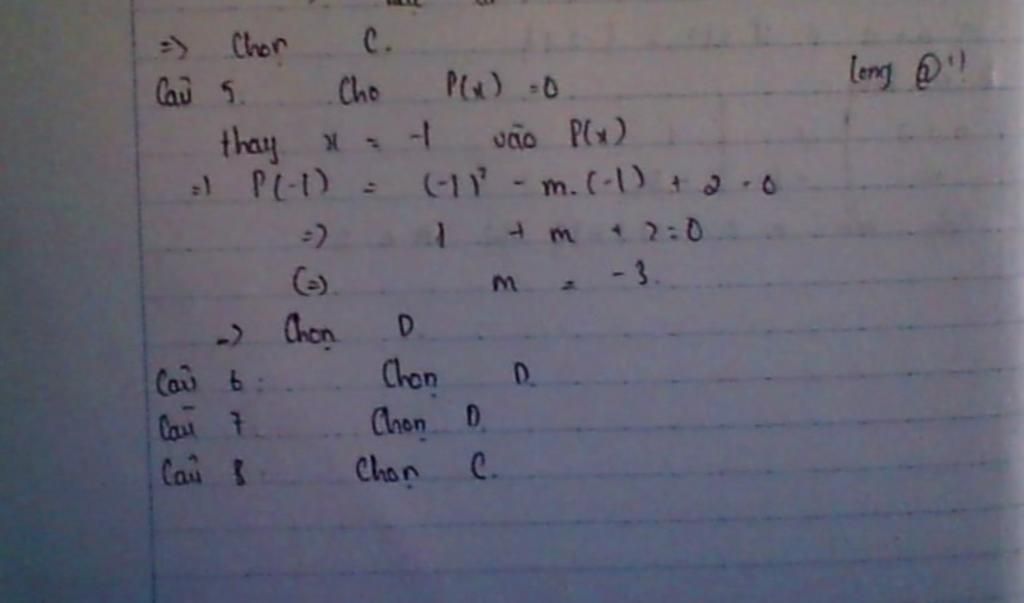 => Chọn C.
Câu 5. Cho P(x) = 0
long @
thay x = -1 vào P(x)
=> P(-1) = (-1)² - m.(-1) + 2 = 0
=> 1 + m + 2 = 0
(=) m = -3.
-> Chọn D
Câu 6: Chọn D.
Câu 7. Chọn D.
Câu 8 Chọn C.